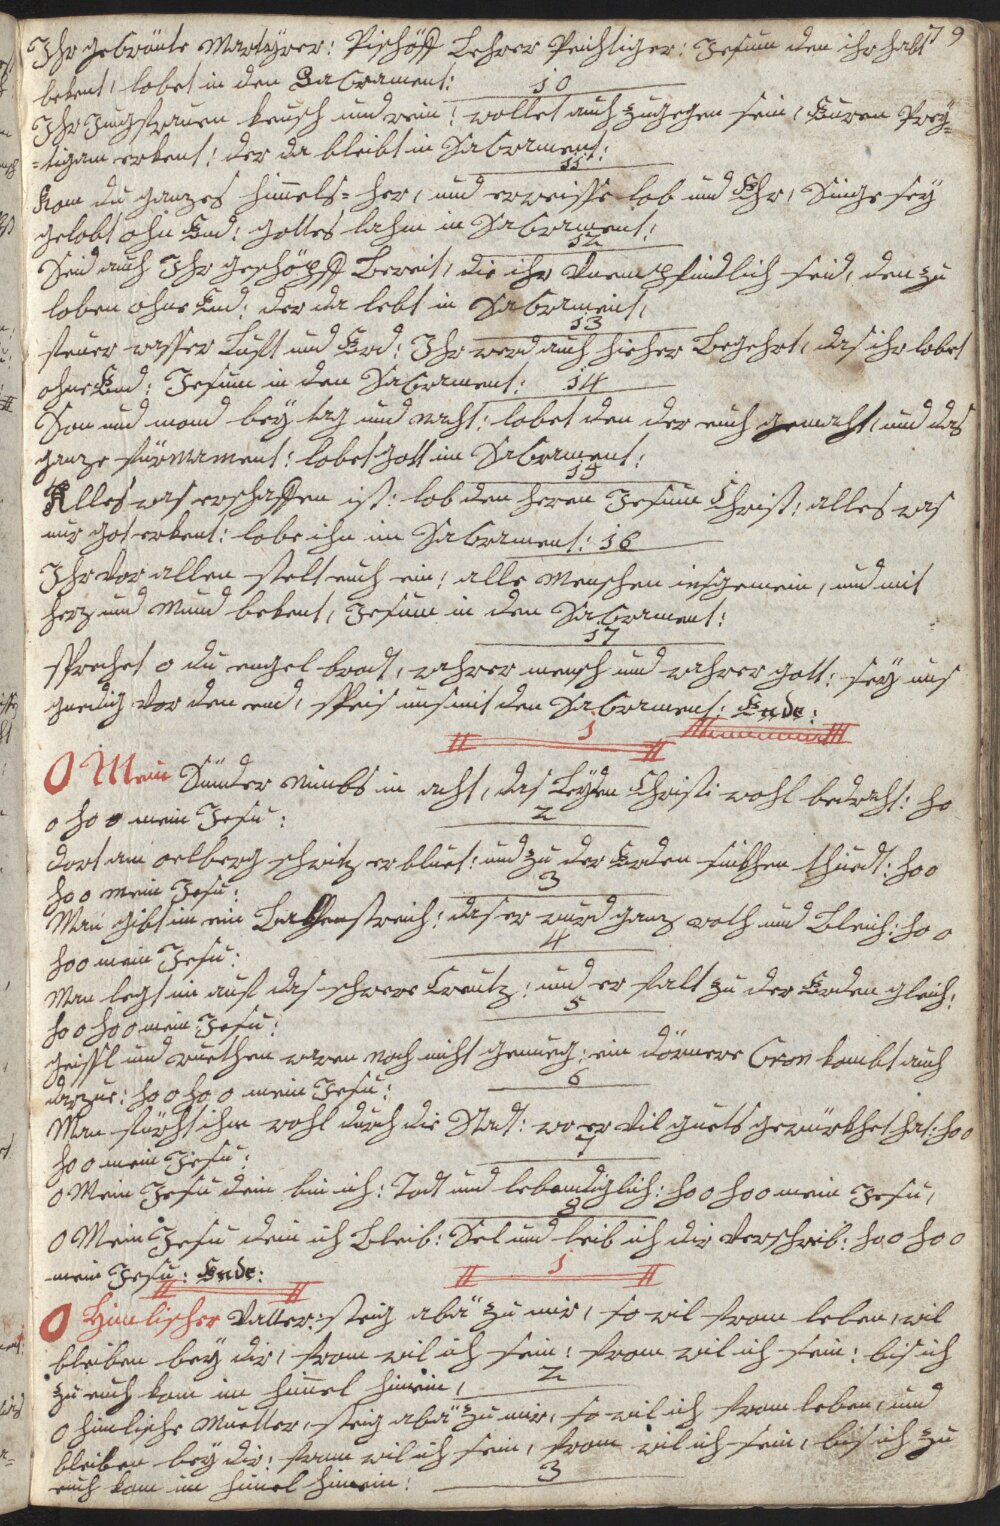 79
Ihr gecrönte Martyrer: Pischöff Lehrer Peichtiger: Jesum den ihr habt
bekent, lobet in den Sacrament:
10
Ihr Jugfrauen keusch und rein: wollet auch zugegen sein, Euren Prey-
-tigam erkent: der da bleibt in Sacrament:
11
Kom du ganzes himels-her, und erweisse lob und Ehr, Singe sey
gelobt ohn End: gottes lahm in Sacrament:
12
Seid auch Ihr geschöpff Bereit, die ihr Unempfindlich seid, den zu
loben ohne End: der da lebt in Sacrament,
13
feuer wasser Luft und Erd: Ihr werd auch hieher Begehrt, das ihr lobet
ohne End: Jesum in den Sacrament: 14
Son und mond bey tag und nacht: lobet den der euch gemacht, und das
ganze fürmament: lobet Gott im Sacrament:
15
Alles was erschaffen ist: lob den heren Jesum Christ: alles was
nur got erkent: lobe ihn im Sacrament: 16
Ihr vor allen stelt euch ein: alle Menschen insgemein, und mit
herz und Mund bekent, Jesum in den Sacrament:
17
sprechet o du engel brodt, wahrer mensch und wahrer gott: sey uns
gnedig vor den end, speis uns mit den Sacrament: Ende:
1
O Mein Sünder Nimbs in acht, das Leyden Christi wohl bedracht: ho
o ho o mein Jesu:
2
dort am oelberg schwitz er bluet: und zu der Erden sinkhen thuedt: ho o
ho o mein Jesu:
3
Man gibt im ein Bakhenstreich: das er wurd ganz roth und Bleich: ho o
ho o mein Jesu:
4
Man legt im auf das schwere Creutz: und er falt zu der Erden gleich:
ho o ho o mein Jesu:
5
geissl und ruethen waren noch nicht genueg: ein dörnere Cron kombt auch
darzue: ho o ho o mein Jesu:
6
Man fürht ihm wohl durch die Stadt: wo er vil guets gewürkhet hat: ho o
ho o mein Jesu:
7
O Mein Jesu dein bin ich: Todt und lebendiglich: ho o ho o mein Jesu,
8
O Mein Jesu dein ich Bleib: Sel und leib ich dir verschreib: ho o ho o
mein Jesu: Ende:
1
O Himlischer Vatter: steig abä zu mir, so vil from leben, vil
bleiben bey dir, from wil ich sein: from wil ich sein: bis ich
zu euch kom im himel hinein,
2
O himlische Muetter, steig abä zu mir, so wil ich from leben, und
bleiben bey dir: from wil ich sein, from wil ich sein, bis ich zu
euch kom im himel hinein:
3